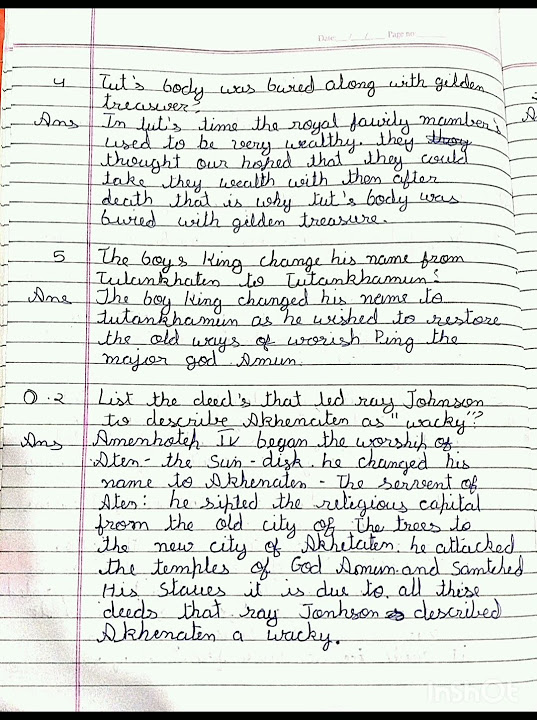 Date __/__/__ Page no ______
4 Tut's body was buried along with gilden
treasurer?
Ans In tut's time the royal fawily mamber's
used to be very wealthy. they
thought our hoped that they could
take they wealth with then after
death that is why tut's body was
buried with gilden treasure.
5 The boys King change his name from
Tutankhaten to Tutankhamun?
Ans The boy king changed his name to
tutankhamun as he wished to restore
the old ways of worish Ping the
major god Amun.
Q.2 List the deed's that led ray Johnson
to describe Akhenaten as "wacky"?
Ans Amenhoteh IV began the worship of
Aten - the Sun - disk. he changed his
name to Akhenaten - The servent of
Aten: he sifted the religious capital
from the old city of The trees to
the new city of Akhetaten. he attacked
the temples of God Aomun. and Samtched
His Staues it is due to. all these
deeds that ray Jonhson described
Akhenaten a wacky.
InShOt